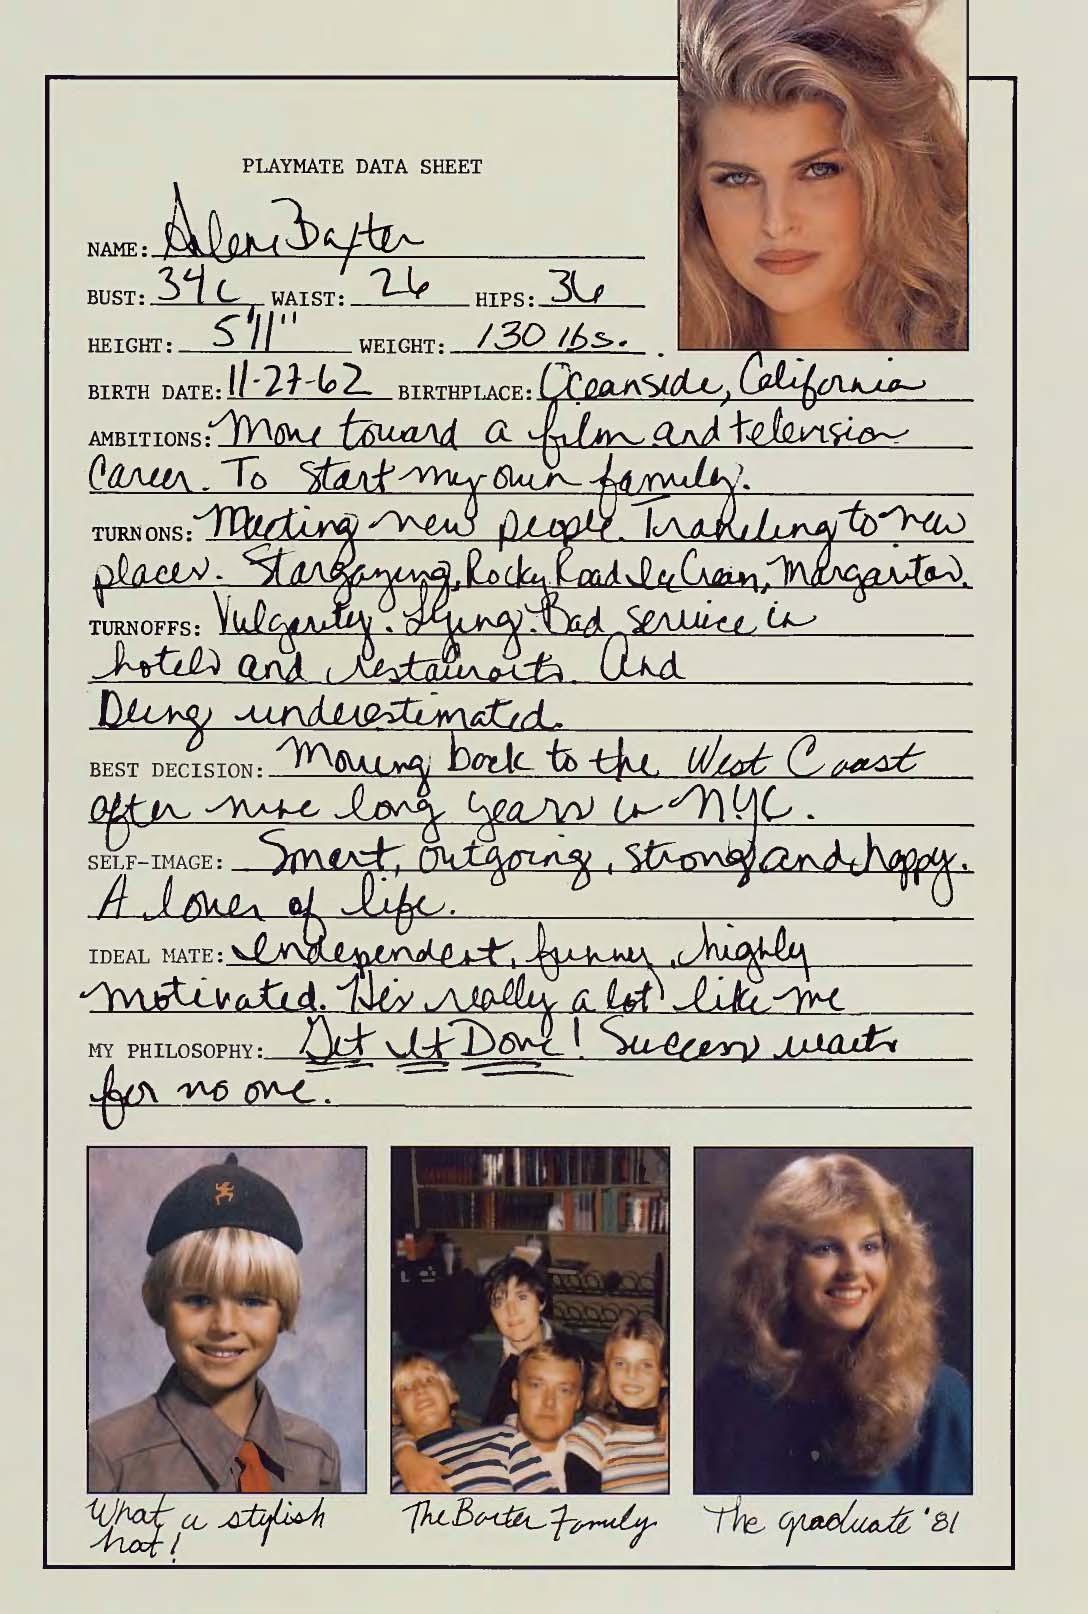 PLAYMATE DATA SHEET
NAME: Arlene Baxter
BUST: 34C WAIST: 26 HIPS: 36
HEIGHT: 5'11" WEIGHT: 130 lbs.
BIRTH DATE: 11-27-62 BIRTHPLACE: Oceanside, California
AMBITIONS: Move toward a film and television
Career. To Start my own family.
TURN ONS: Meeting new people. Traveling to new
places. Stargazing, Rocky Road Ice Cream, Margaritas.
TURNOFFS: Vulgarity. Lying. Bad Service in
hotels and restaurants. And
Being underestimated.
BEST DECISION: Moving back to the West Coast
after nine long years in NYC.
SELF-IMAGE: Smart, outgoing, strong and happy.
A lover of life.
IDEAL MATE: Independent, funny, highly
motivated. He's really a lot like me
MY PHILOSOPHY: Get It Done! Success waits
for no one.
What a stylish
hat!
The Baxter Family
The graduate '81